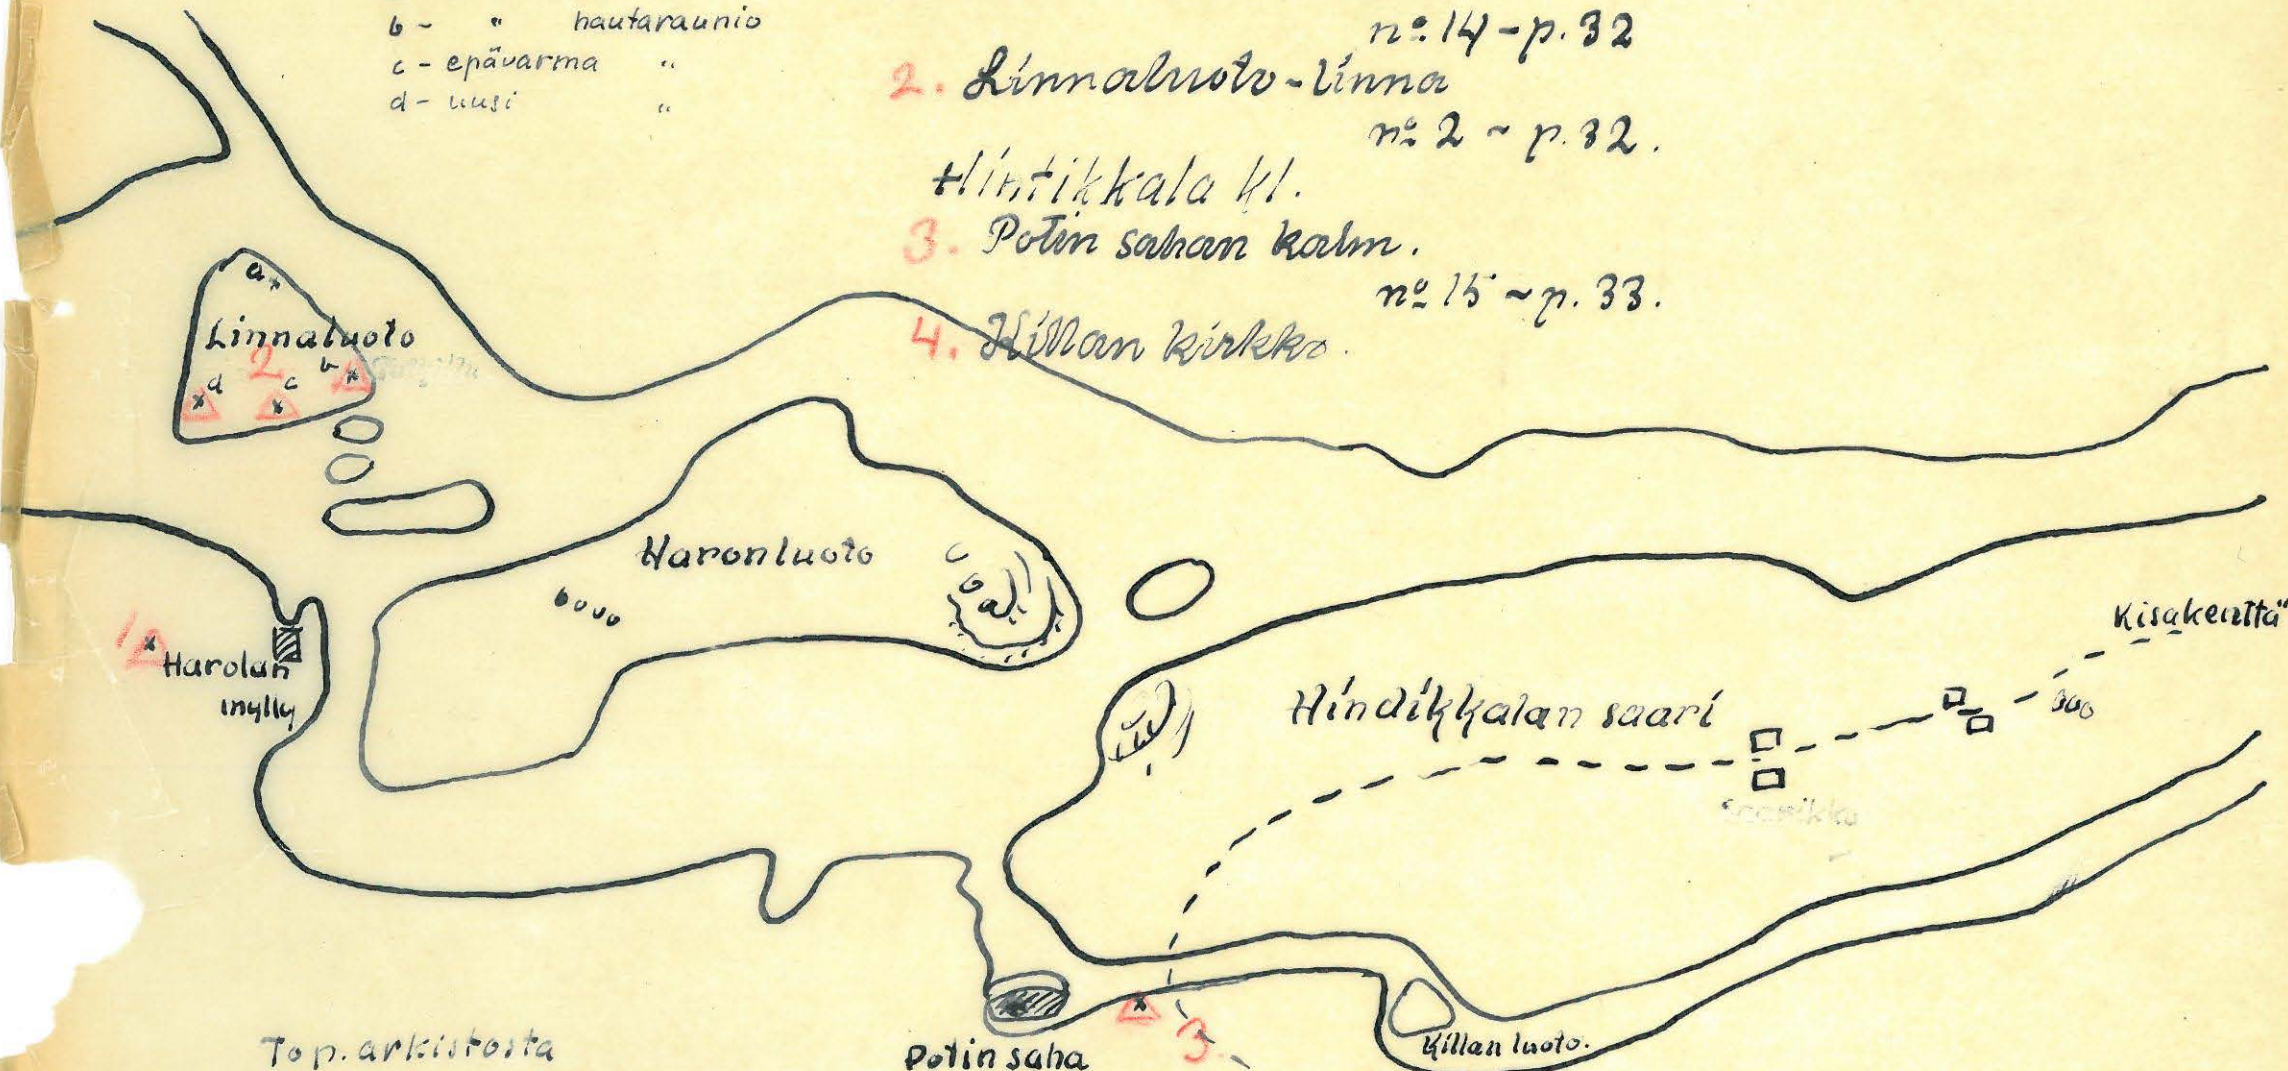 b - " hautaraunio
c - epävarma "
d - uusi "
nº 14 - p. 32
2. Linnaluoto - linna
nº 2 ~ p. 32.
Hintikkala kl.
3. Potin sahan kalm.
nº 15 ~ p. 33.
4. Killan kirkko.
a
Linnaluoto
2
b
d
c
Haronluoto
1
Harolan
mylly
Kisakenttä
Hindikkalan saari
3.
Killan luoto.
Top. arkistosta
Potin saha